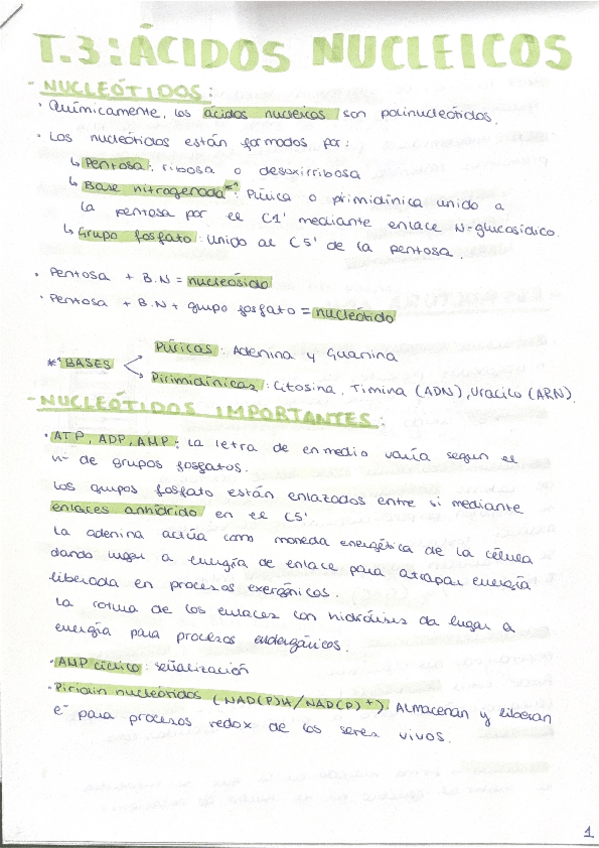 T.3: ÁCIDOS NUCLEICOS
- NUCLEÓTIDOS:
· Químicamente, los ácidos nucleicos son polinucleótidos.
· Los nucleótidos están formados por:
↳ Pentosa: ribosa o desoxirribosa
↳ Base nitrogenada*¹: Púrica o pirimidínica unido a
la pentosa por el C1' mediante enlace N-glucosídico.
↳ Grupo fosfato: Unido al C5' de la pentosa.
· Pentosa + B.N = nucleósido
· Pentosa + B.N + grupo fosfato = nucleótido
Púricas: Adenina y Guanina
*¹ BASES
Pirimidínicas: Citosina, Timina (ADN), Uracilo (ARN).
- NUCLEÓTIDOS IMPORTANTES:
· ATP, ADP, AMP: La letra de enmedio varía según el
nº de grupos fosfatos.
Los grupos fosfato están enlazados entre si mediante
enlaces anhídrido en el C5'
La adenina actúa como moneda energética de la célula
dando lugar a energía de enlace para atrapar energía
liberada en procesos exergónicos.
La rotura de los enlaces con hidrólisis da lugar a
energía para procesos endergónicos.
· AMP cíclico: señalización
· Piridin nucleótidos (NAD(P)H/NAD(P)+). Almacenan y liberan
e⁻ para procesos redox de los seres vivos.
1